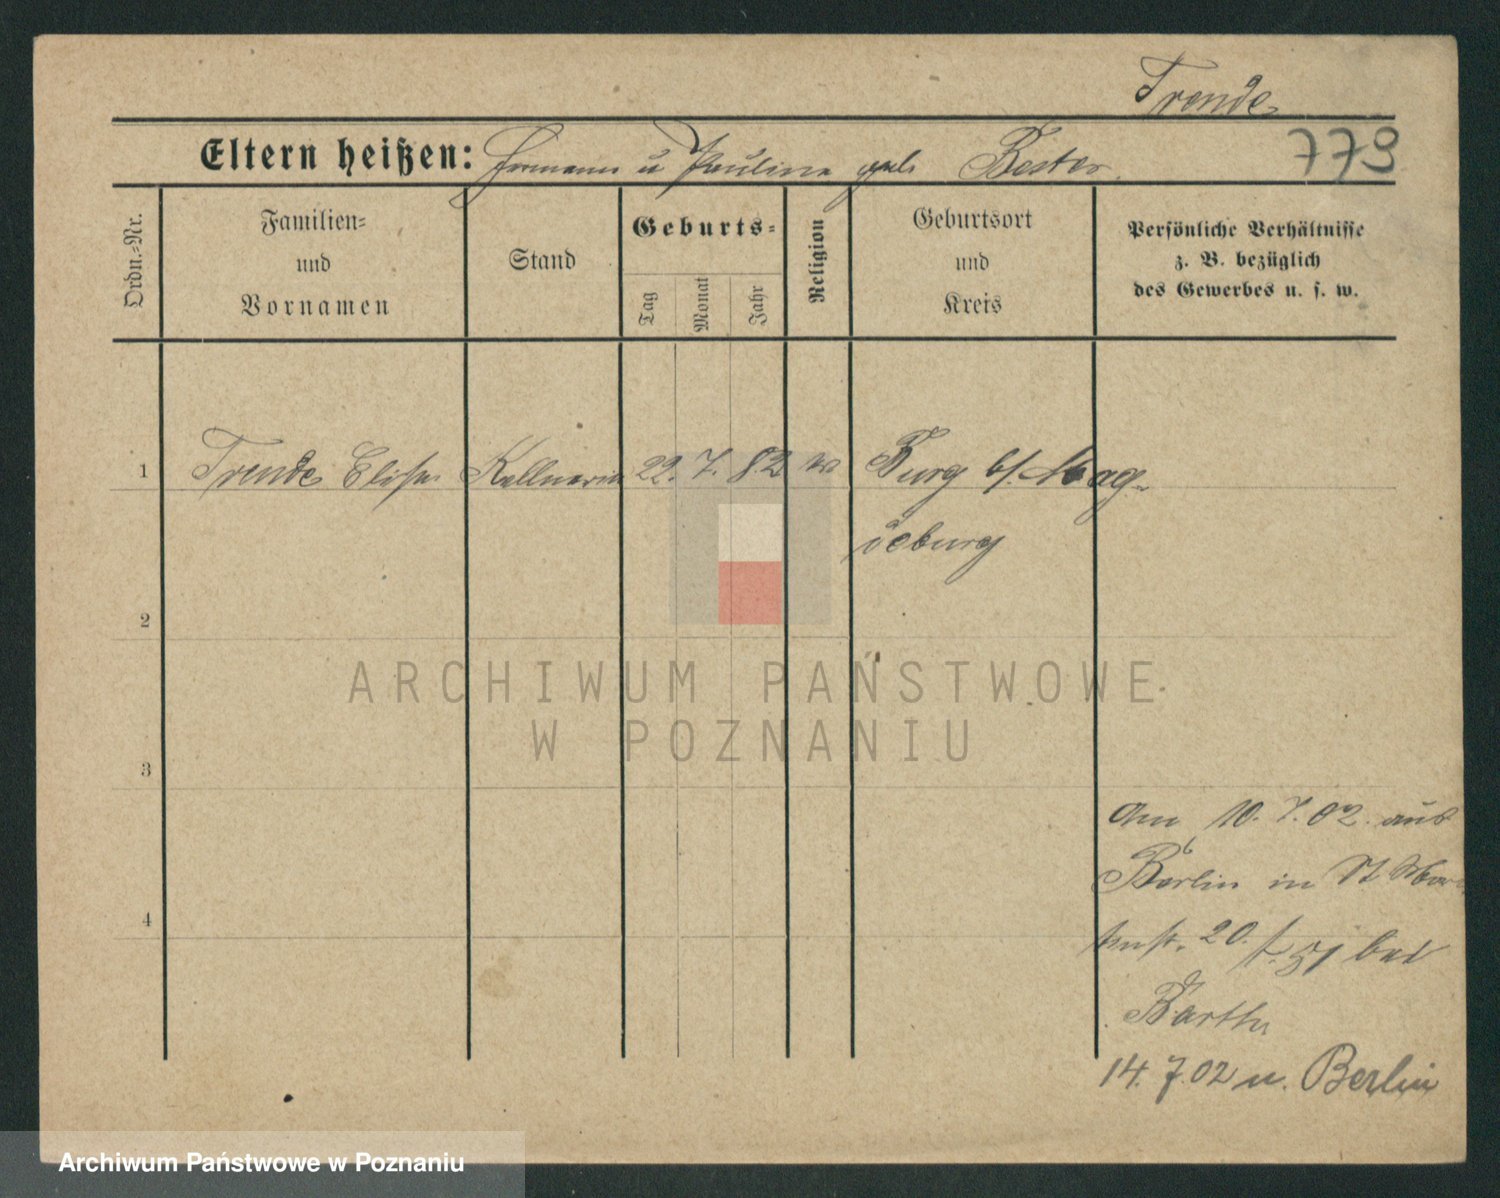 Trende
Eltern heißen: Hermann u Pauline geb. Bester
779
Ordn.-Nr.
Familien-
und
Vornamen
Stand
Geburts-
Tag
Monat
Jahr
Religion
Geburtsort
und
Kreis
Persönliche Verhältnisse
z. B. bezüglich
des Gewerbes u. s. w.
1 Trende Elise Kellnerin 22. 7. 82 Burg b/. Mag-
deburg
2
ARCHIWUM PAŃSTWOWE
W POZNANIU
3
Am 10. 7. 02. aus
Berlin in St
4
20. bei
Barth
14. 7. 02 n. Berlin
Archiwum Państwowe w Poznaniu